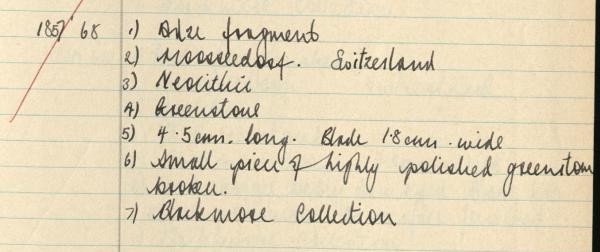 185/68 1) Adze fragment
2) Moosseedorf. Switzerland
3) Neolithic
4) Greenstone
5) 4.5cm. long. Blade 1.8cm. wide
6) Small piece of highly polished greenstone
broken.
7) Blackmore Collection